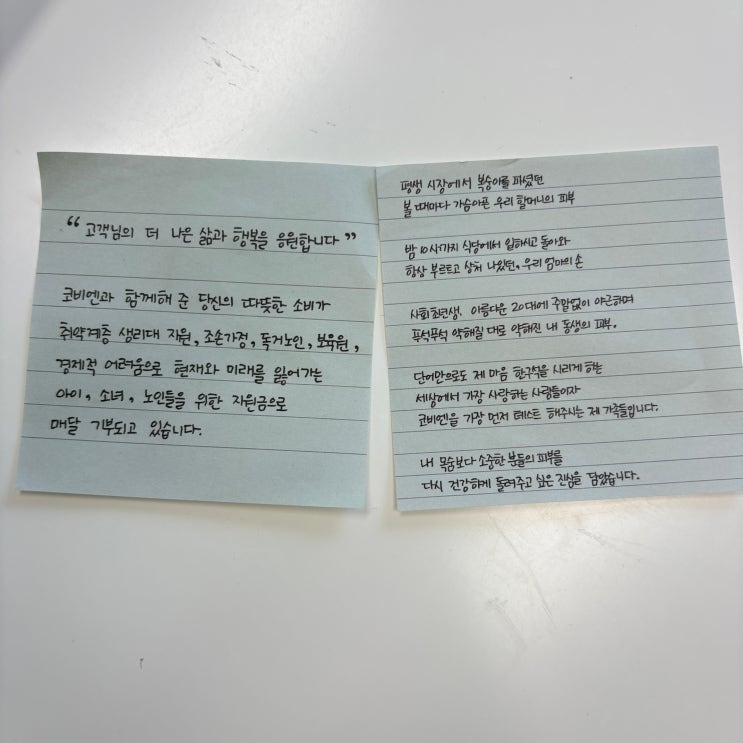 “ 고객님의 더 나은 삶과 행복을 응원합니다 ”
코비엔과 함께해 준 당신의 따뜻한 소비가
취약계층 생리대 지원, 조손가정, 독거노인, 보육원,
경제적 어려움으로 현재와 미래를 잃어가는
아이, 소녀, 노인들을 위한 지원금으로
매달 기부되고 있습니다.
평생 시장에서 복숭아를 파셨던
볼 때마다 가슴아픈 우리 할머니의 피부
밤 10시까지 식당에서 일하시고 돌아와
항상 부르트고 상처 나있던, 우리 엄마의 손
사회초년생, 아름다운 20대에 주말없이 야근하며
푸석푸석 약해질 대로 약해진 내 동생의 피부.
단어만으로도 제 마음 한구석을 시리게 하는
세상에서 가장 사랑하는 사람들이자
코비엔을 가장 먼저 테스트 해주시는 제 가족들입니다.
내 목숨보다 소중한 분들의 피부를
다시 건강하게 돌려주고 싶은 진심을 담았습니다.